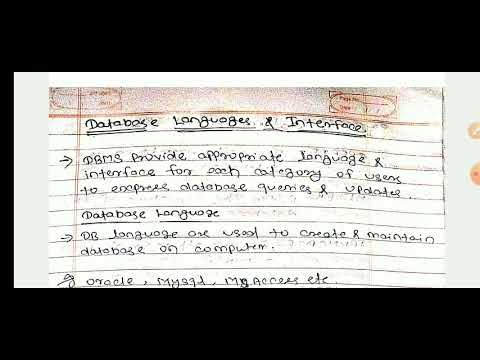 Database Languages & Interface
→ DBMS provide appropriate language &
interface for each category of users
to express database queries & updates.
Database Language
→ DB language are used to create & maintain
database on computer.
eg oracle, MySql, MS Access etc.